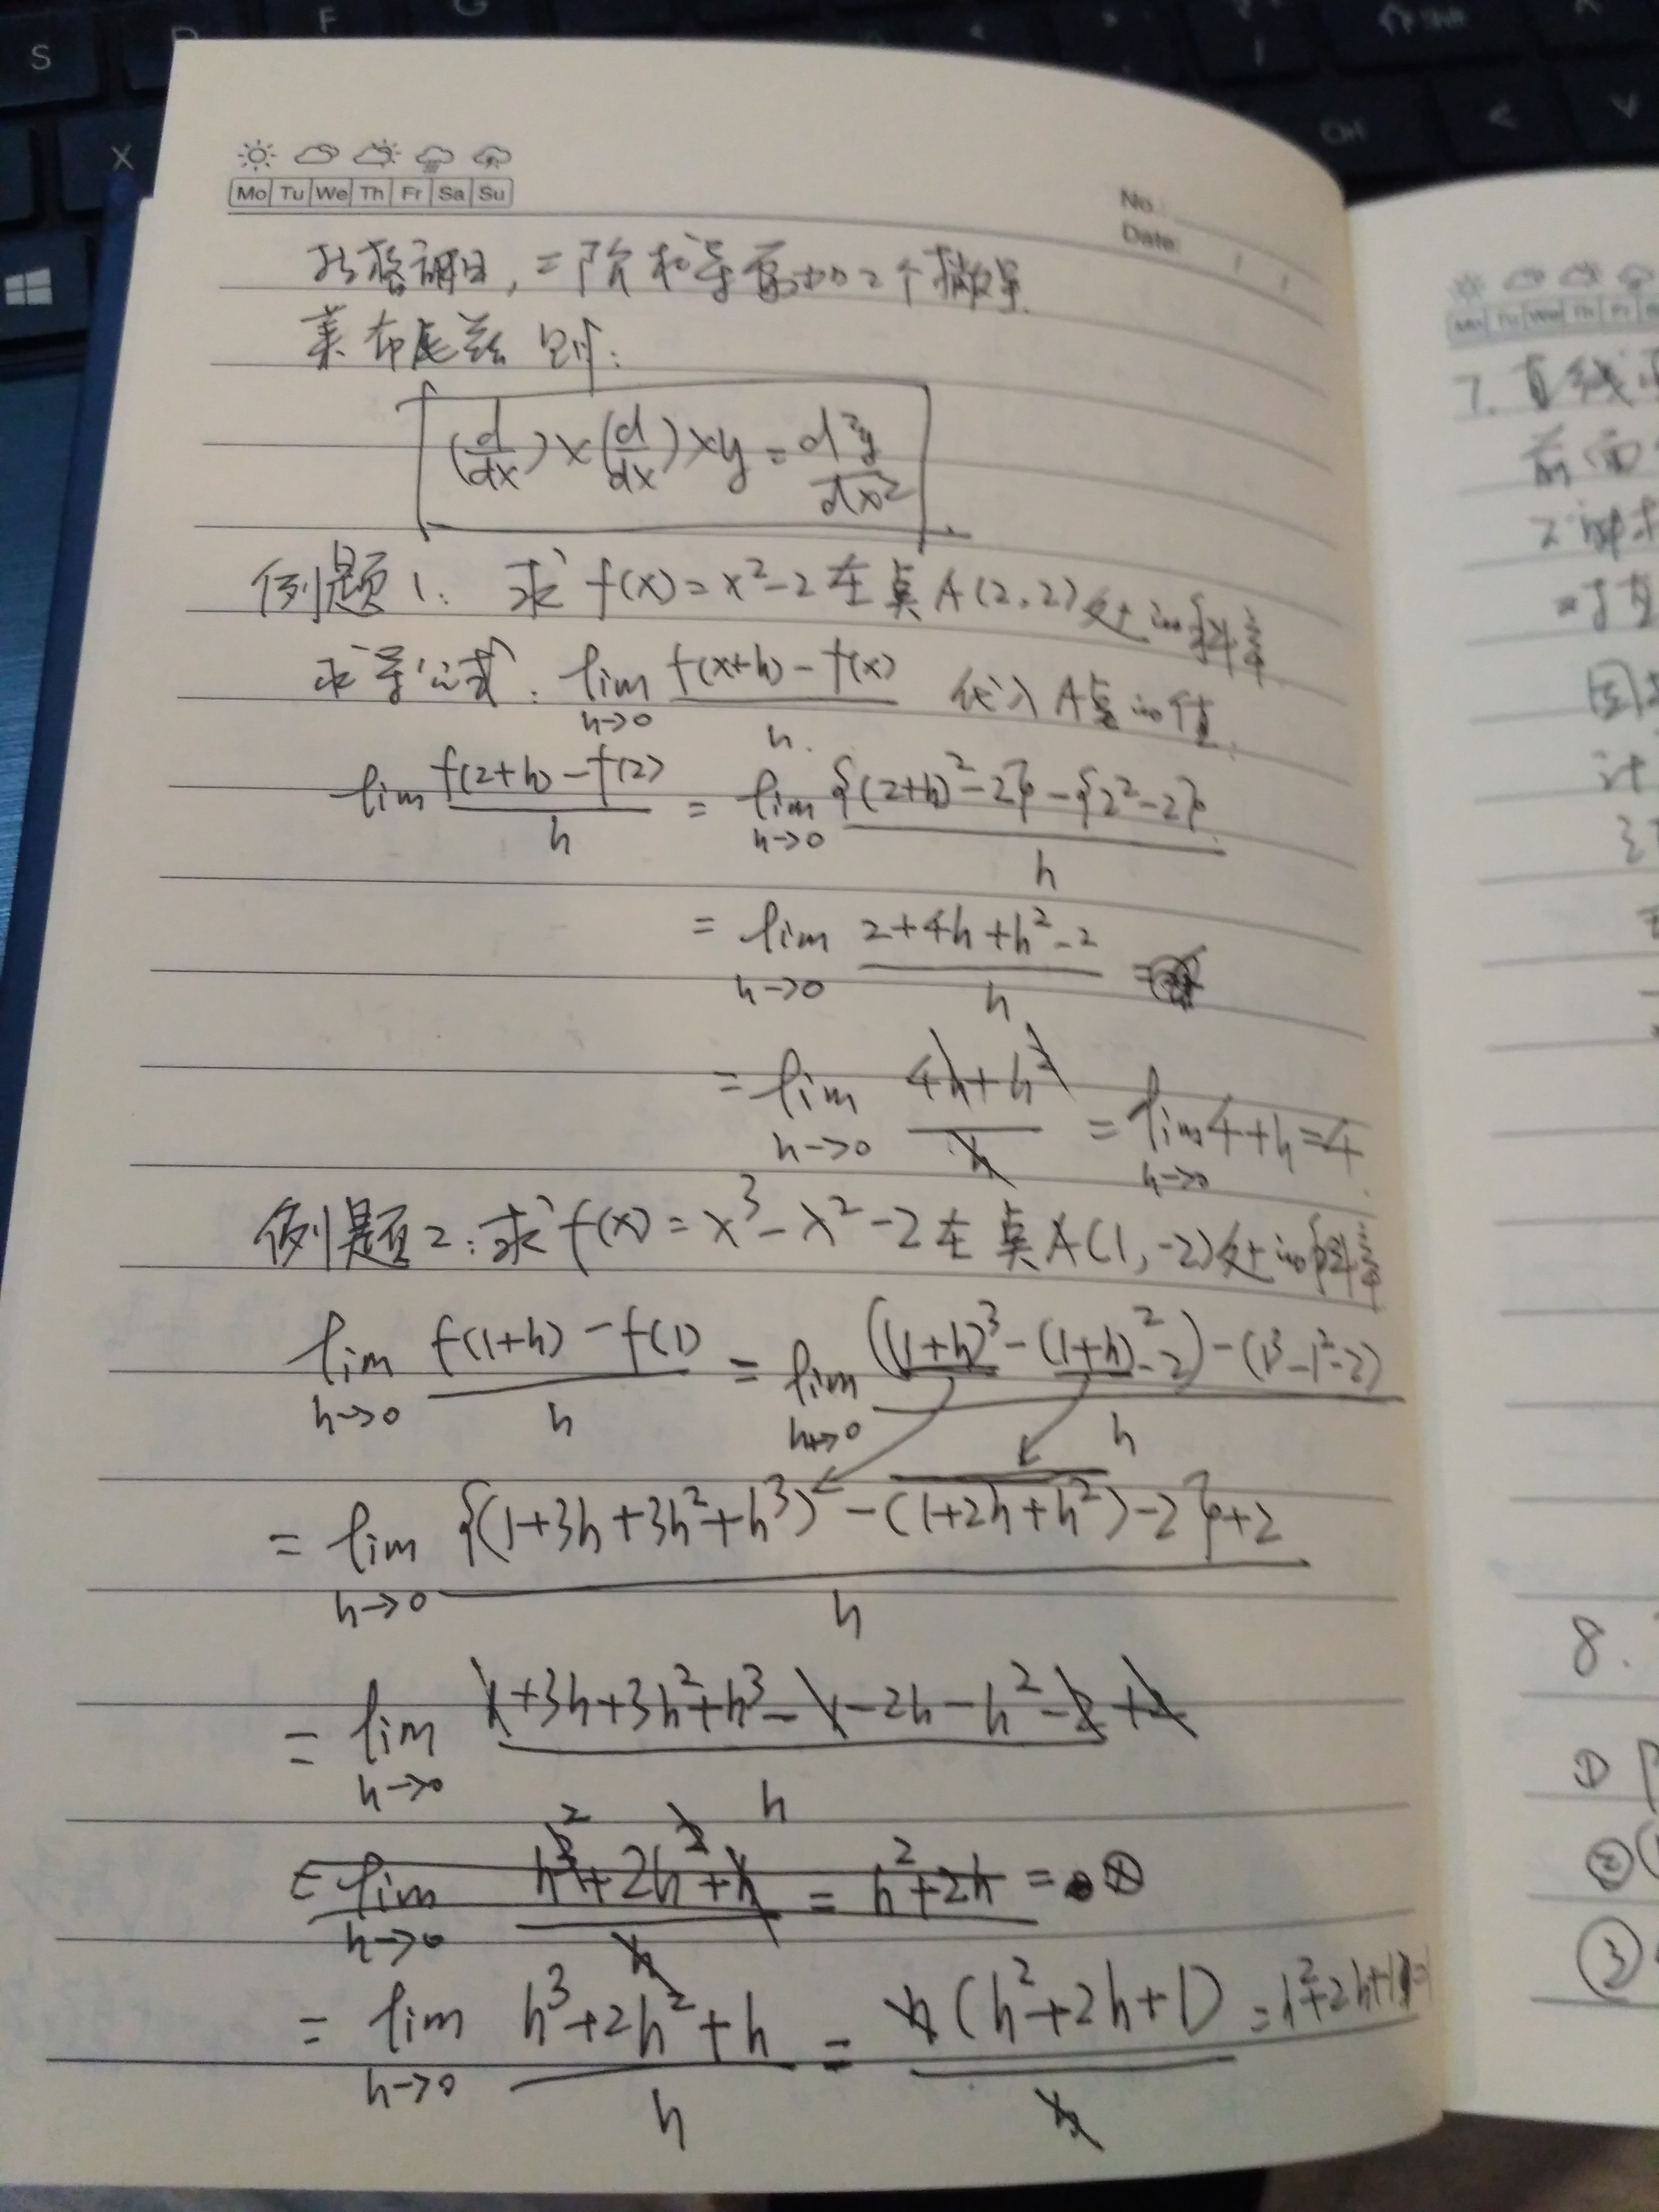 S
F
G
X
Shift
Ctrl
Mo Tu We Th Fr Sa Su
No.:
Date:
二阶和导需要 2个撇号.
莱布尼兹则:
(d/dx)×(d/dx)×y=d²y/dx²
例题1. 求 f(x)=x²-2 在点A(2,2)处的斜率
求导公式: lim h→0 (f(x+h)-f(x))/h. 代入A点的值.
lim (f(2+h)-f(2))/h = lim h→0 ({(2+h)²-2}-{2²-2})/h
= lim h→0 (2+4h+h²-2)/h =
= lim h→0 (4h+h²)/h = lim h→0 4+h=4.
例题2: 求 f(x)=x³-x²-2 在点A(1,-2)处的斜率
lim h→0 (f(1+h)-f(1))/h = lim h→0 (((1+h)³-(1+h)²-2)-(1³-1²-2))/h
= lim h→0 ({(1+3h+3h²+h³)-(1+2h+h²)-2}+2)/h
= lim h→0 (1+3h+3h²+h³-1-2h-h²-2+2)/h
= lim h→0 (h³+2h²+h)/h = h²+2h =
= lim h→0 (h³+2h²+h)/h = h(h²+2h+1)/h = h²+2h+1=1
7. 直线
前面
8.
①
②
③